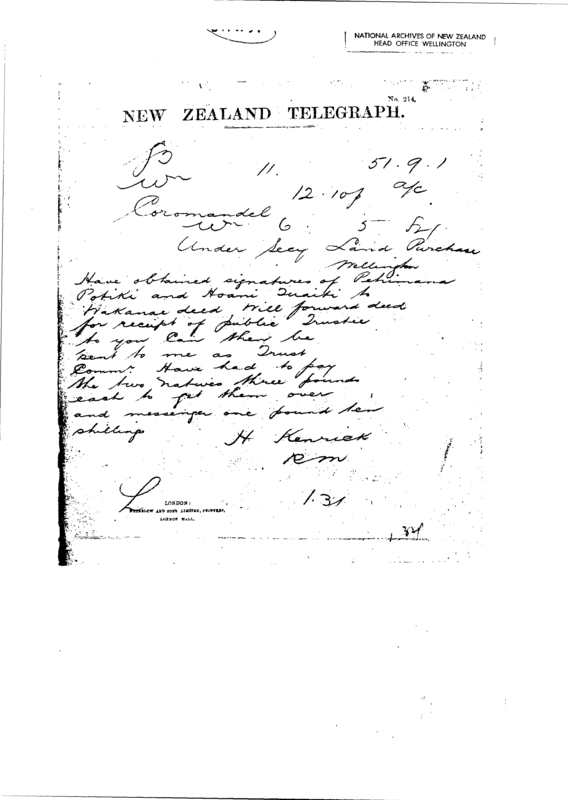 NATIONAL ARCHIVES OF NEW ZEALAND
HEAD OFFICE WELLINGTON
No. 214.
NEW ZEALAND TELEGRAPH.
11. 51.9.1
Wn 12.10p a/c
Coromandel
Wn 6 5
Under Secy Land Purchase
Wellington
Have obtained signatures of Petrimana
Potiki and Hoani Tuaiti to
Wakanae deed Will forward deed
for receipt of public Trustee
to you Can then be
sent to me as Trust
Commr. Have had to pay
the two natives three pounds
each to get them over
and messenger one pound ten
shillings
H Kenrick
RM
LONDON:
WATERLOW AND SONS LIMITED, PRINTERS,
LONDON WALL.
1.31